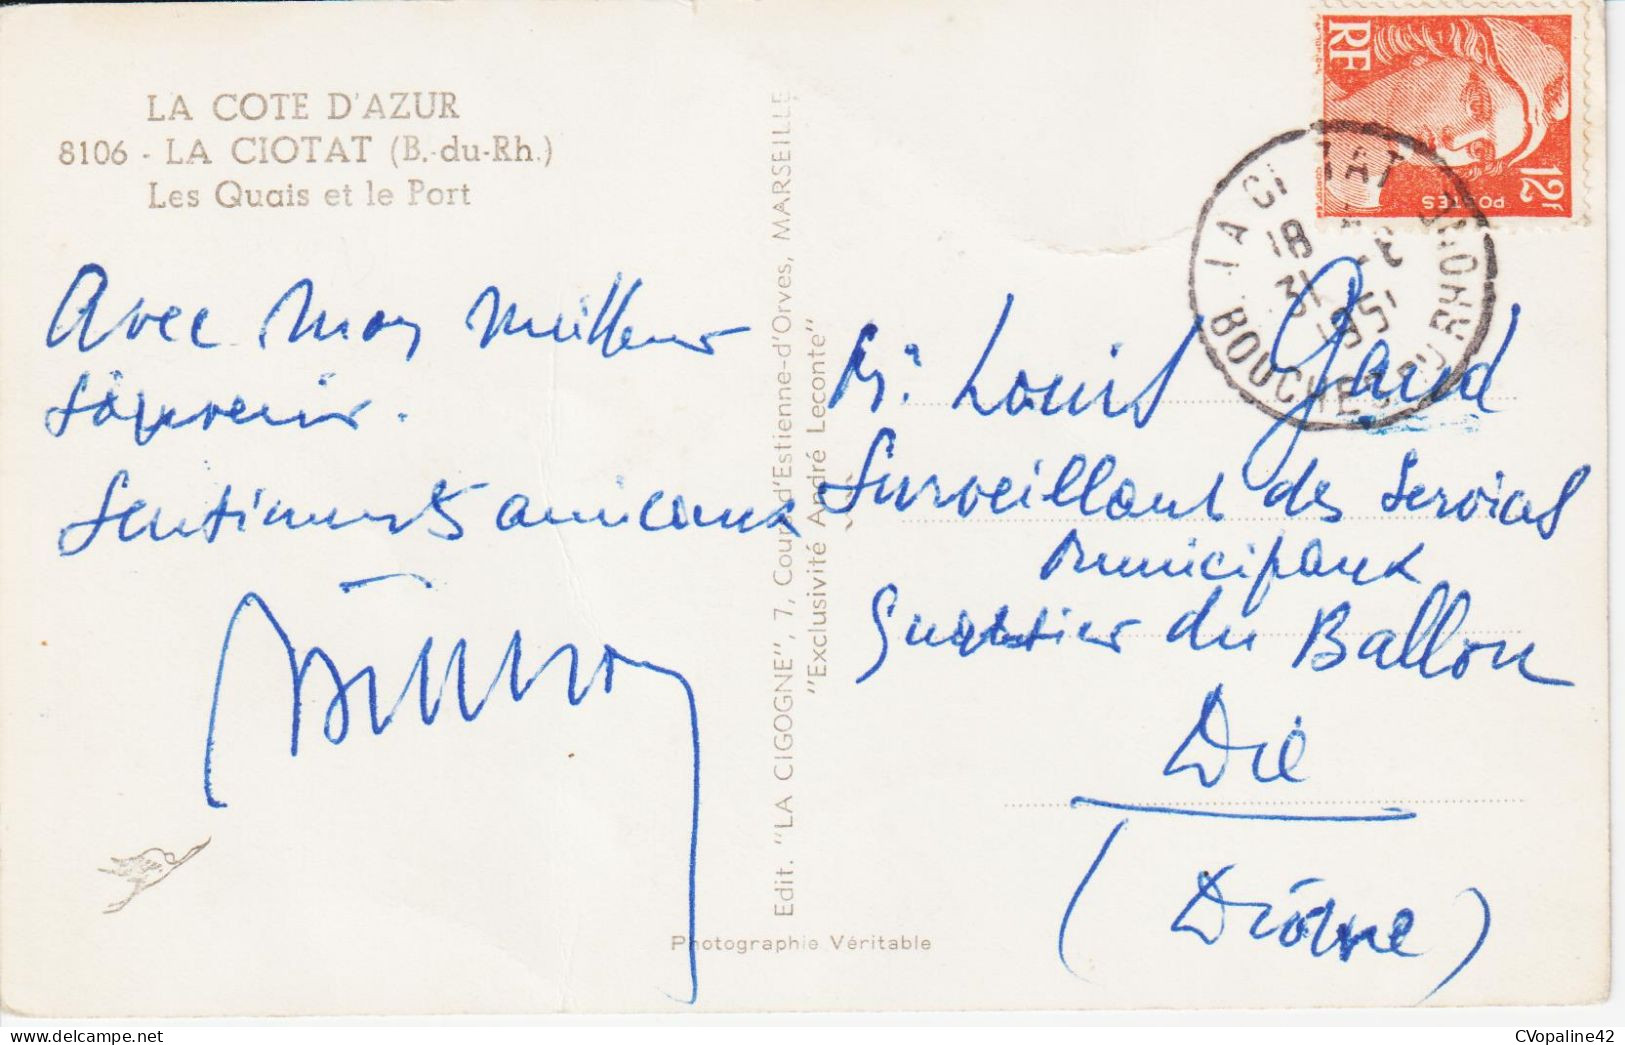 LA COTE D'AZUR
8106 - LA CIOTAT (B.-du-Rh.)
Les Quais et le Port
Avec mon meilleur
souvenir.
Sentiments amicaux
Edit. "LA CIGOGNE", 7, Cour d'Estienne-d'Orves, MARSEILLE
"Exclusivité André Leconte"
Photographie Véritable
RF
12F
POSTES
LA CIOTAT
BOUCHES DU RHONE
18
31
1951
M. Louis Gaud
Surveillant des Services
Municipaux
Quartier du Ballon
Die
(Drôme)
CVopaline42